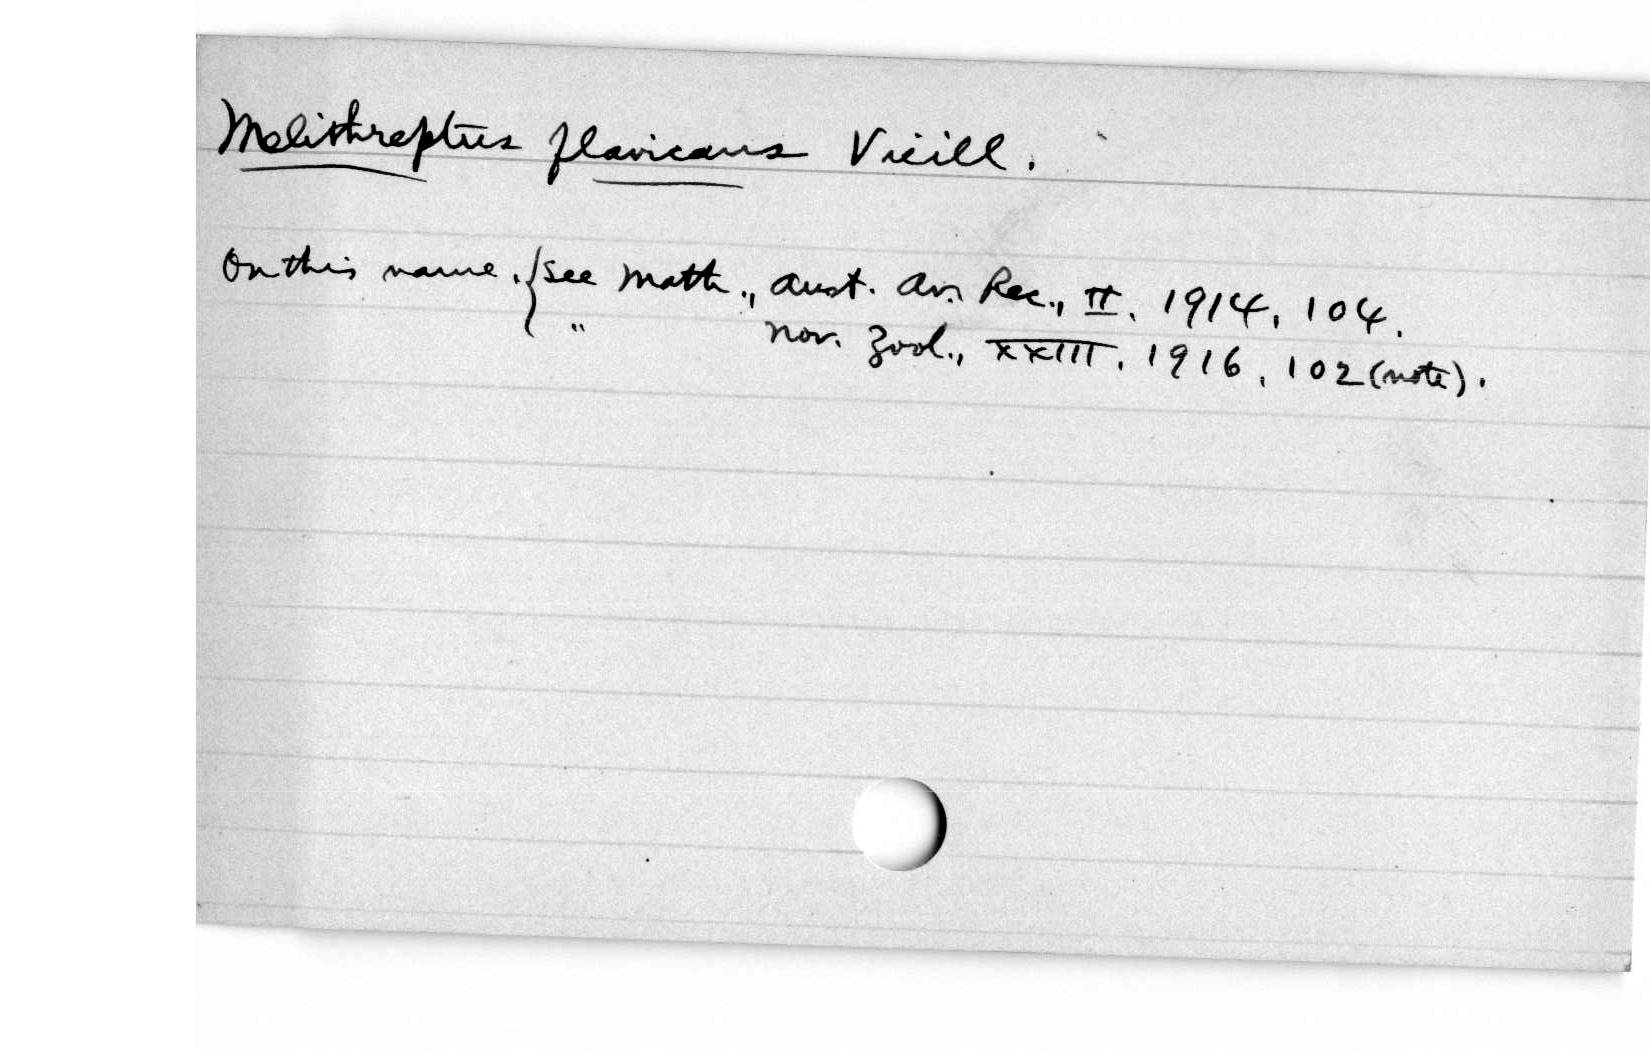 Melithreptus flavicans Vieill.
On this name. { see Math., Aust. Av. Rec., II. 1914, 104.
" Nov. Zool., XXIII. 1916, 102 (note).